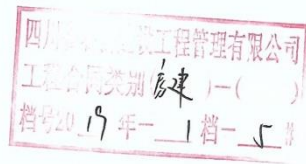 四川 建设工程管理有限公司
工程合同类别(房建)—( )
档号2019年—1档—5#